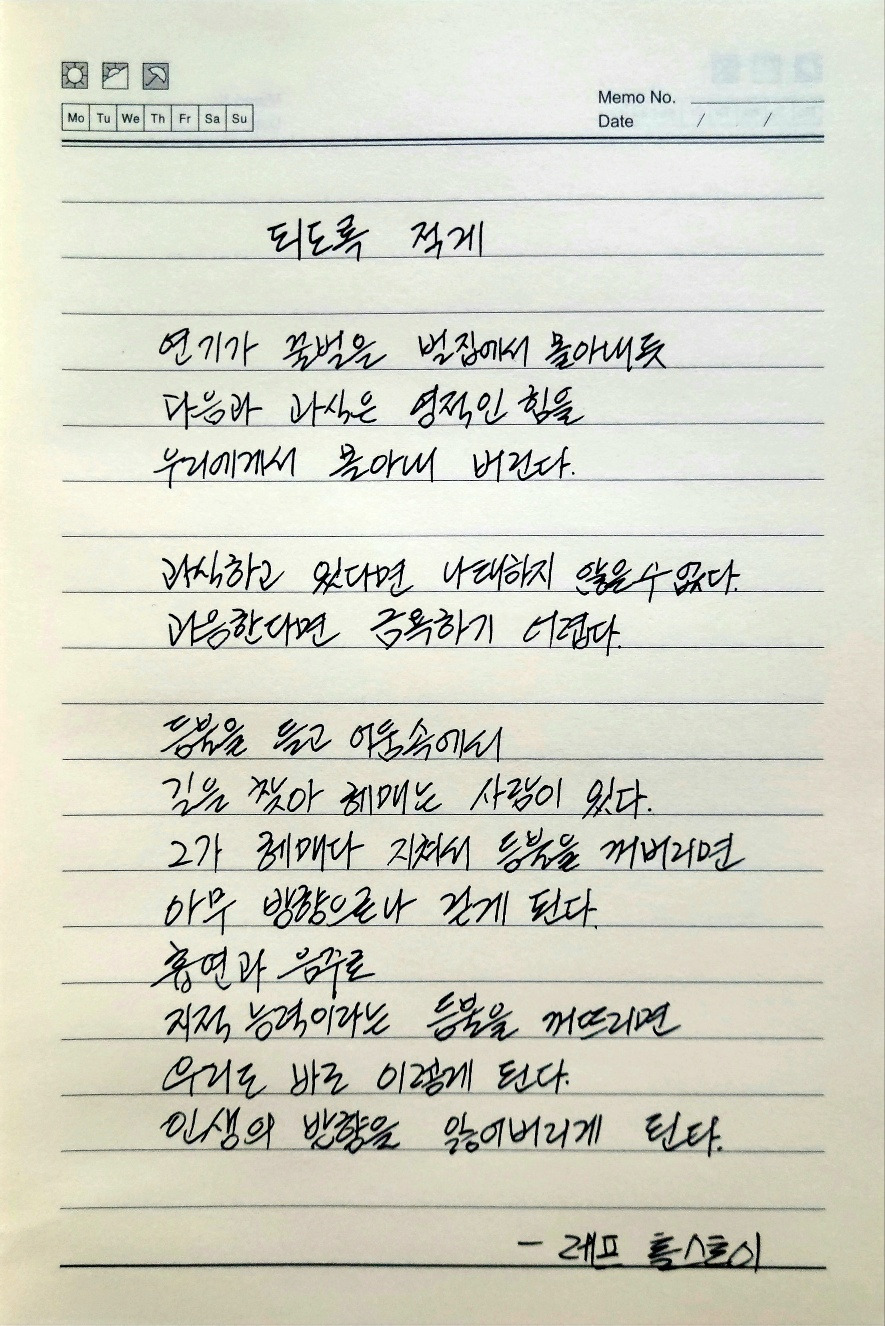 Memo No.
Mo Tu We Th Fr Sa Su
Date / /
되도록 적게
연기가 꿀벌을 벌집에서 몰아내듯
다음과 과식은 영적인 힘을
우리에게서 몰아내 버린다.
과식하고 있다면 나태하지 않을 수 없다.
과음한다면 금욕하기 어렵다.
등불을 들고 어둠속에서
길을 찾아 헤매는 사람이 있다.
그가 헤매다 지쳐서 등불을 꺼버리면
아무 방향으로나 걷게 된다.
흡연과 음주로
지적 능력이라는 등불을 꺼뜨리면
우리도 바로 이렇게 된다.
인생의 방향을 잃어버리게 된다.
- 레프 톨스토이